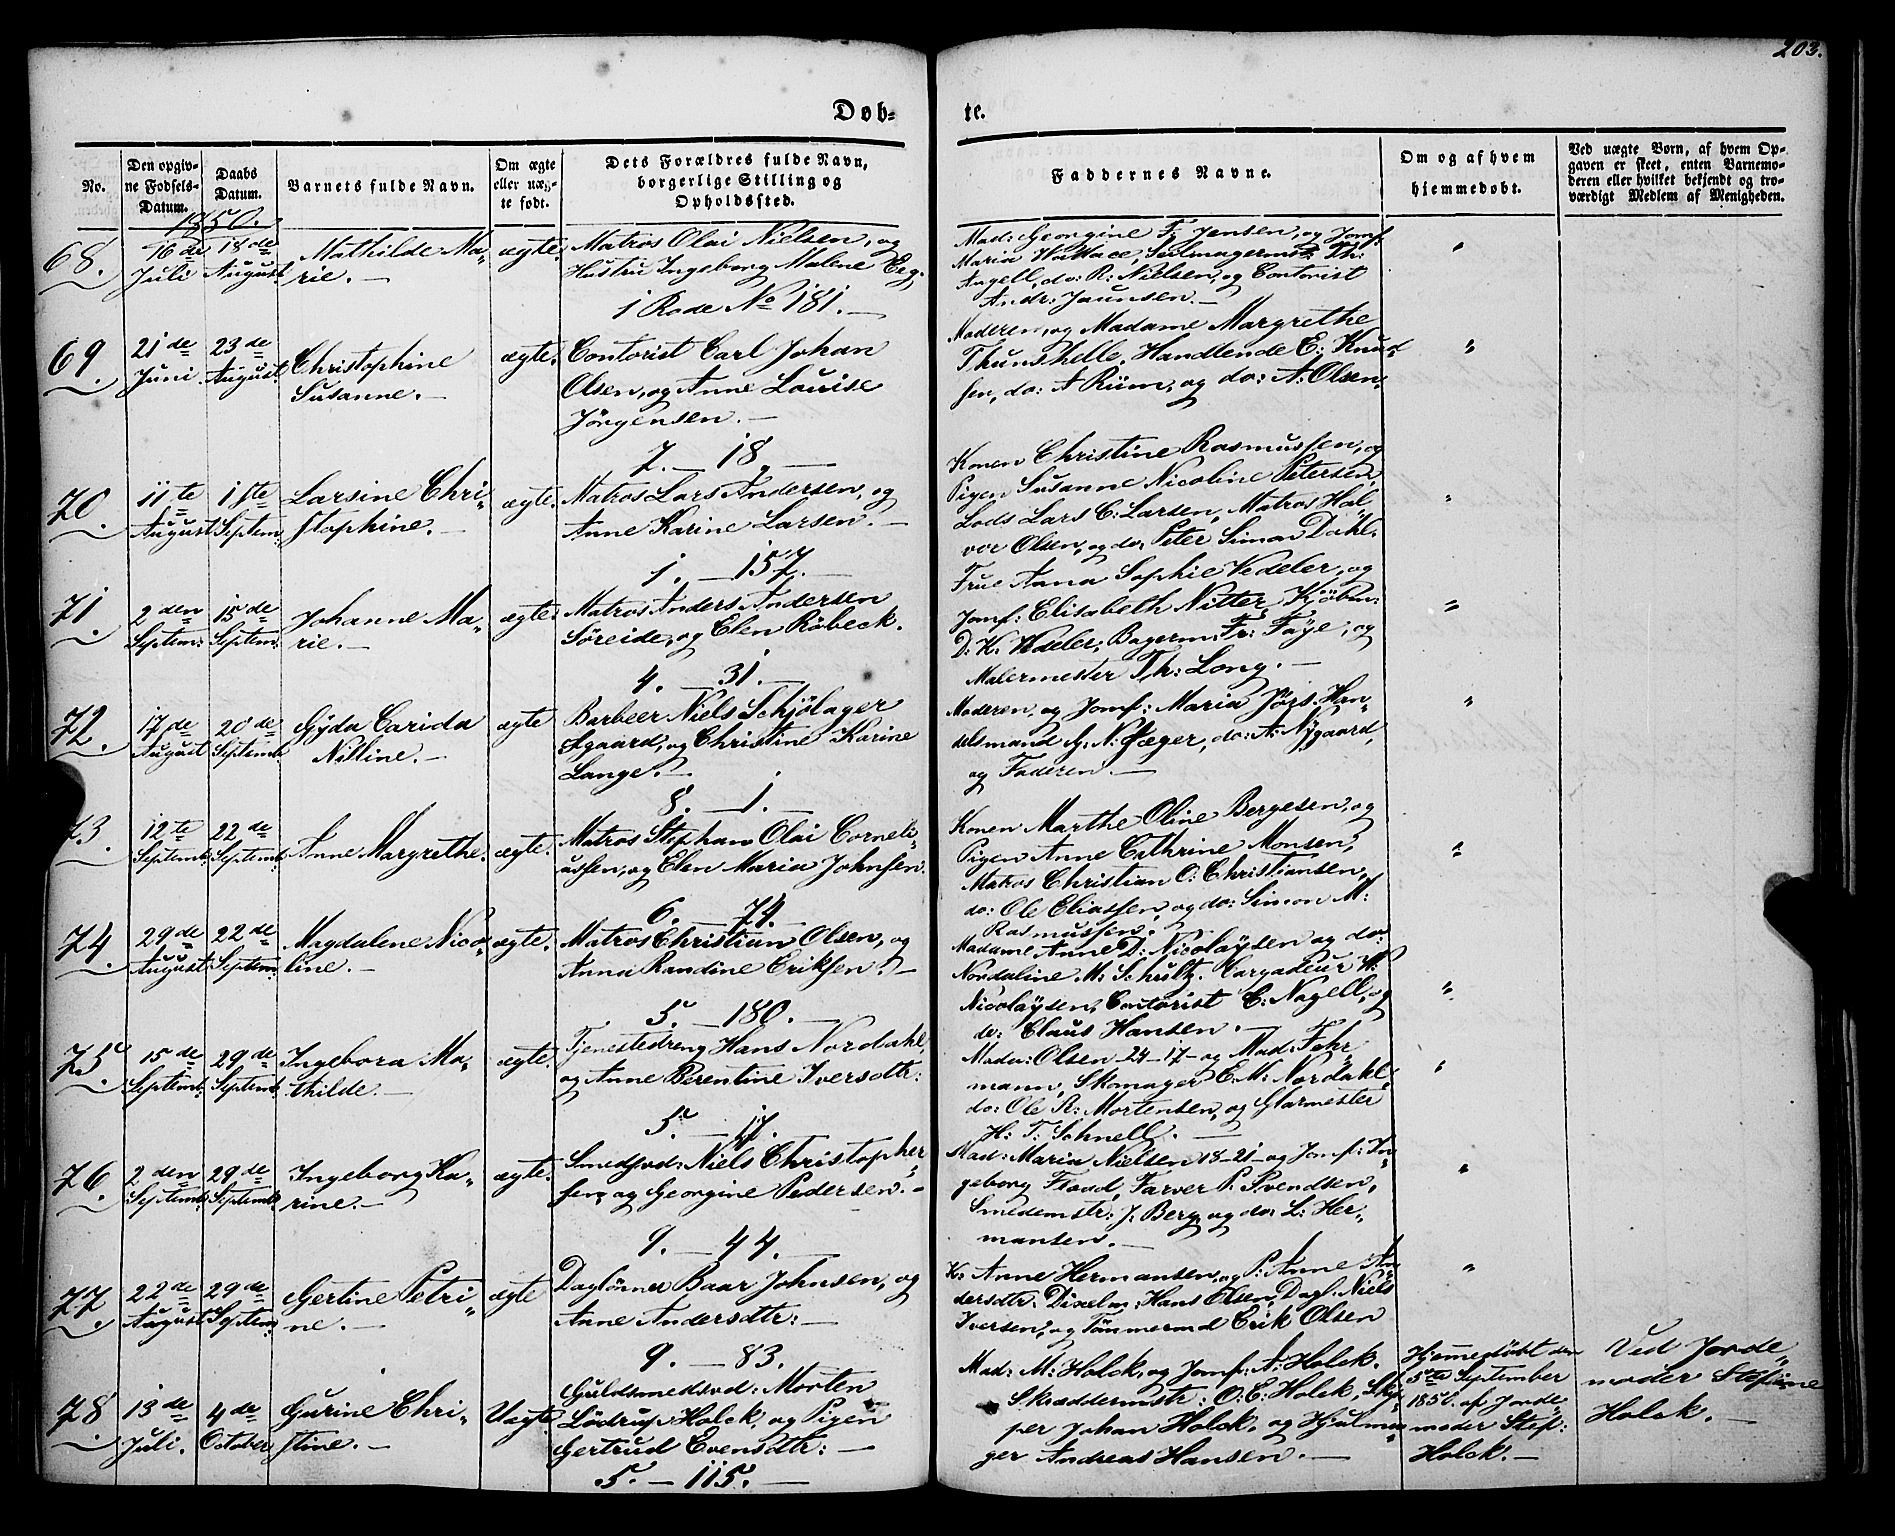 203.
Døb-
te.
No.
Den opgiv-
ne Fødsels-
Datum.
Daabs
Datum.
Barnets fulde Navn.
Om ægte
eller uæg-
te født.
Dets Forældres fulde Navn,
borgerlige Stilling og
Opholdssted.
Faddernes Navne.
Om og af hvem
hjemmedøbt.
Ved uægte Børn, af hvem Op-
gaven er skeet, enten Barnemo-
deren eller hvilket bekjendt og tro-
værdigt Medlem af Menigheden.
1850.
68.
16de
Juli
18de
August
Mathilde Ma-
rie.
ægte.
Matros Olai Nielsen, og
Hustru Ingeborg Malene Eeg.
1 Rode No 181.
Mad: Georgine F. Jensen, og Jomf:
Maria Wallace, Seilmagermstr. Th:
Angell, do: R: Nielsen, og Contorist
Andr: Jaunsen.
"
69.
21de
Juni
23de
August
Christophine
Susanne.
ægte.
Contorist Carl Johan
Olsen, og Anne Louise
Jörgensen.
7. – 18
Moderen, og Madame Margrethe
Thunshelle, Handlende E: Knud-
sen, do: A Rüm, og do: A: Olsen.
"
70.
11te
August
1ste
Septem:
Larsine Chri-
stophine.
ægte.
Matros Lars Andersen, og
Anne Karine Larsen.
1. – 157.
Konen Christine Rasmussen, og
Pigen Susanne Nicoline Petersen,
Lods Lars C: Larsen, Matros Hal-
vor Olsen, og do: Peter Simon Dahl.
"
71.
2den
Septem:
15de
Septem:
Johanne Ma-
rie.
ægte.
Matros Anders Andersen
Söreide, og Elen Röbeck.
4. – 31.
Frue Anna Sophie Vedeler, og
Jomf: Elisabeth Nitter, Kjöbm:
D: K. Vedeler, Bagerm: Fr: Faye, og
Malermester Th: Long.
"
72.
17de
August
20de
Septemb:
Gyda Carida
Nilline.
ægte
Barbeer Niels Schjölager
Øgaard, og Christine Karine
Lange.
8. – 1.
Moderen, og Jomf: Maria Jörs. Han-
delsmand G. N. Jæger, do: A: Nygaard,
og Faderen.
"
73.
12te
Septemb:
22de
Septemb:
Anne Margrethe.
ægte.
Matros Stephan Olai Corneli-
ussen, og Elen Maria Johnsen.
6. – 74.
Konen Marthe Oline Bergesen, og
Pigen Anne Cathrine Monsen,
Matros Christian O: Christiansen,
do: Ole Eliassen, og do: Simon M:
Rasmussen.
"
74.
29de
August
22de
Septem:
Magdalene Nico-
line.
ægte.
Matros Christian Olsen, og
Anna Randine Eriksen.
5. – 180.
Madame Anne D: Nicolaysen og do:
Nordaline M: Schultz. Cargadeur W:
Nicolaysen, Contorist C: Nagell, og
do: Claus Hansen.
"
75.
15de
Septemb:
29de
Septemb:
Ingebora Ma-
thilde.
ægte.
Tjenestedreng Hans Nordahl,
og Anne Berentine Iversdtr:
5. – 17.
Mada: Olsen 24–17– og Mad: Fehr-
mann, Skomager E: M: Nordahl,
do: Ole R: Mortensen, og Glarmester
H: T: Schnell.
"
76.
2den
Septemb:
29de
Septemb:
Ingeborg Ka-
rine.
ægte.
Smedsvd: Niels Christopher-
sen, og Georgine Pedersen.
9. – 44.
Mad: Maria Nielsen 18–21– og Jomf: In-
geborg Flood, Farver P. Svendsen,
Smedemstr: J. Berg, og do: L: Her-
mansen.
"
77.
22de
August
29de
Septem:
Gertine Petri-
ne.
ægte
Daglönner Baar Johnsen, og
Anne Andersdtr:
9. – 83.
K: Anne Hermansen, og P: Anne An-
dersdtr. Hans Olsen, Dagl: Niels
Iversen, og Tömmermd Erik Olsen
"
78.
13de
Juli.
4de
October
Gurine Chri-
stine.
Uægte.
Guldsmedsvd: Morten
Lödrup Holck, og Pigen
Gertrud Evensdtr:
5. – 115.
Mad: M: Holck, og Jomf: A: Holck.
Skræddermstr: O. E. Holck, Skip-
per Johan Holck. og Hjulma-
ger Andreas Hansen.
Hjemmedöbt den
5te September
1850. af Jorde-
moder Stef:
Holck.
Ved Jorde-
moder Stefine
Holck.